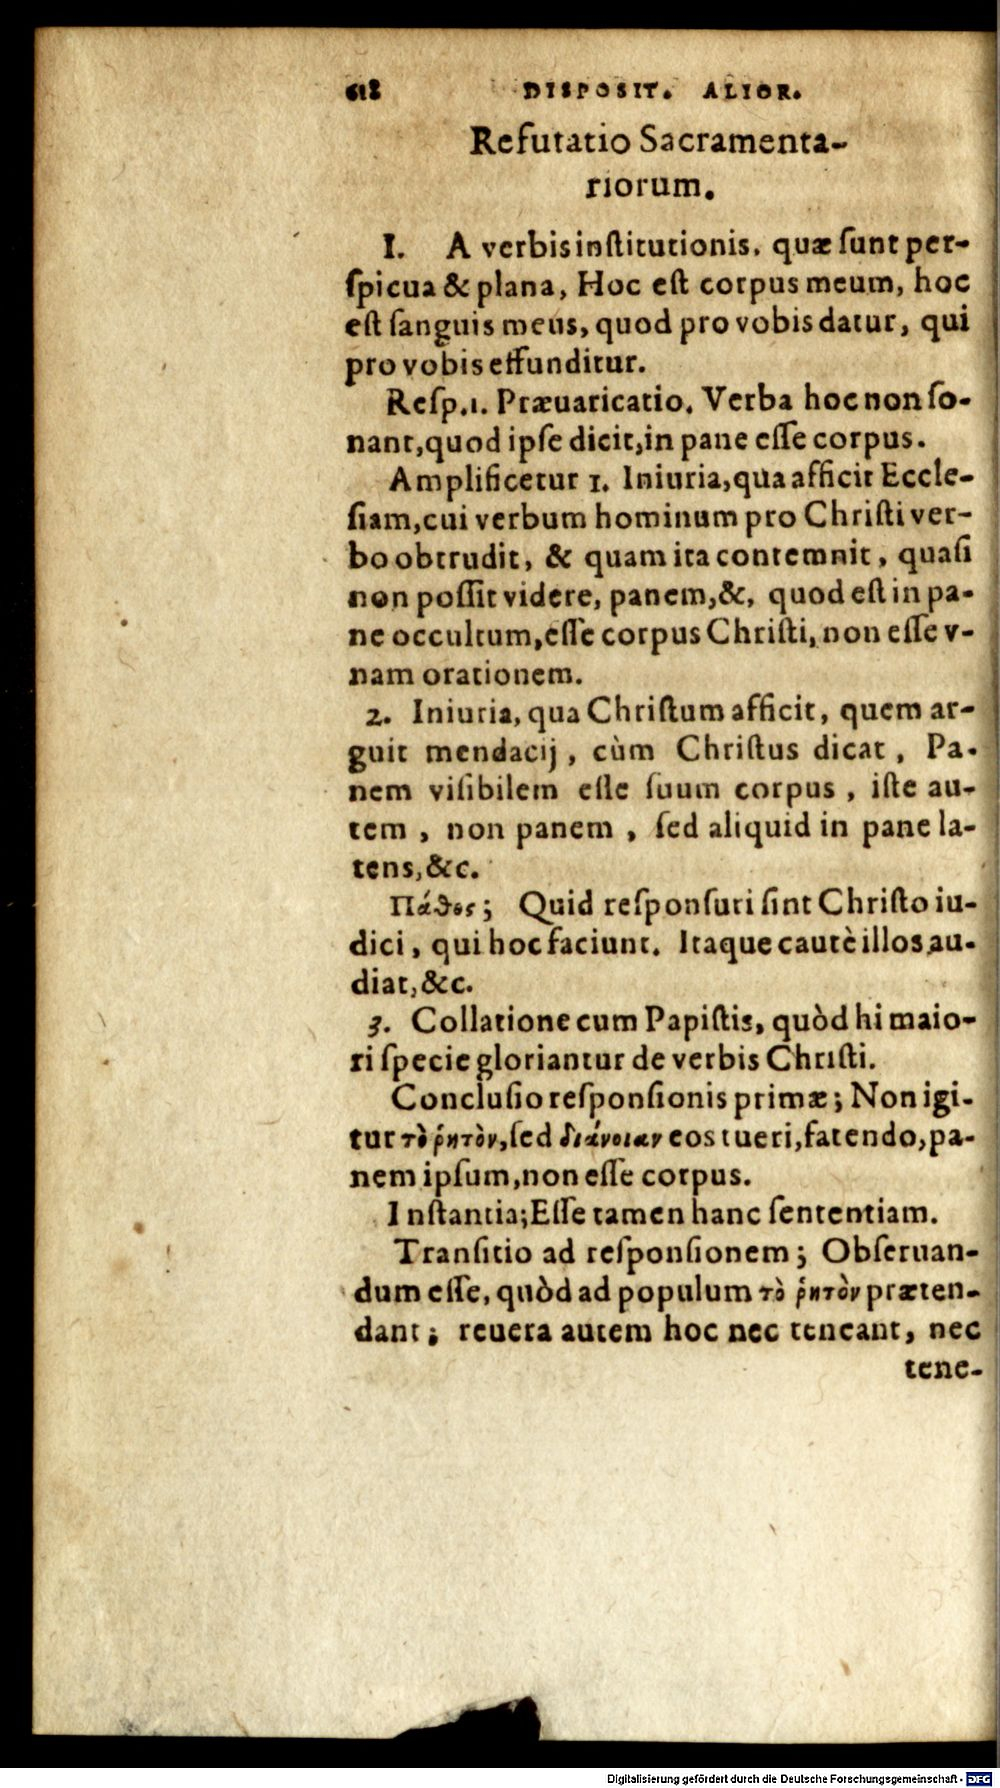 618 DISPOSIT. ALIOR.
Refutatio Sacramenta-
riorum.
I. A verbis institutionis. quæ sunt per-
spicua & plana, Hoc est corpus meum, hoc
est sanguis meus, quod pro vobis datur, qui
pro vobis effunditur.
Resp. 1. Præuaricatio. Verba hoc non so-
nant, quod ipse dicit, in pane esse corpus.
Amplificetur 1. Iniuria, qua afficit Eccle-
siam, cui verbum hominum pro Christi ver-
bo obtrudit, & quam ita contemnit, quasi
non possit videre, panem, &, quod est in pa-
ne occultum, esse corpus Christi, non esse v-
nam orationem.
2. Iniuria, qua Christum afficit, quem ar-
guit mendacij, cùm Christus dicat, Pa-
nem visibilem esse suum corpus, iste au-
tem, non panem, sed aliquid in pane la-
tens, &c.
Πάθος; Quid responsuri sint Christo iu-
dici, qui hoc faciunt. Itaque cautè illos au-
diat, &c.
3. Collatione cum Papistis, quòd hi maio-
ri specie gloriantur de verbis Christi.
Conclusio responsionis primæ; Non igi-
tur τὸ ῥητὸν, sed διάνοιαν eos tueri, fatendo, pa-
nem ipsum, non esse corpus.
Instantia; Esse tamen hanc sententiam.
Transitio ad responsionem; Obseruan-
dum esse, quòd ad populum τὸ ῥητὸν præten-
dant; reuera autem hoc nec teneant, nec
tene-
Digitalisierung gefördert durch die Deutsche Forschungsgemeinschaft - DFG